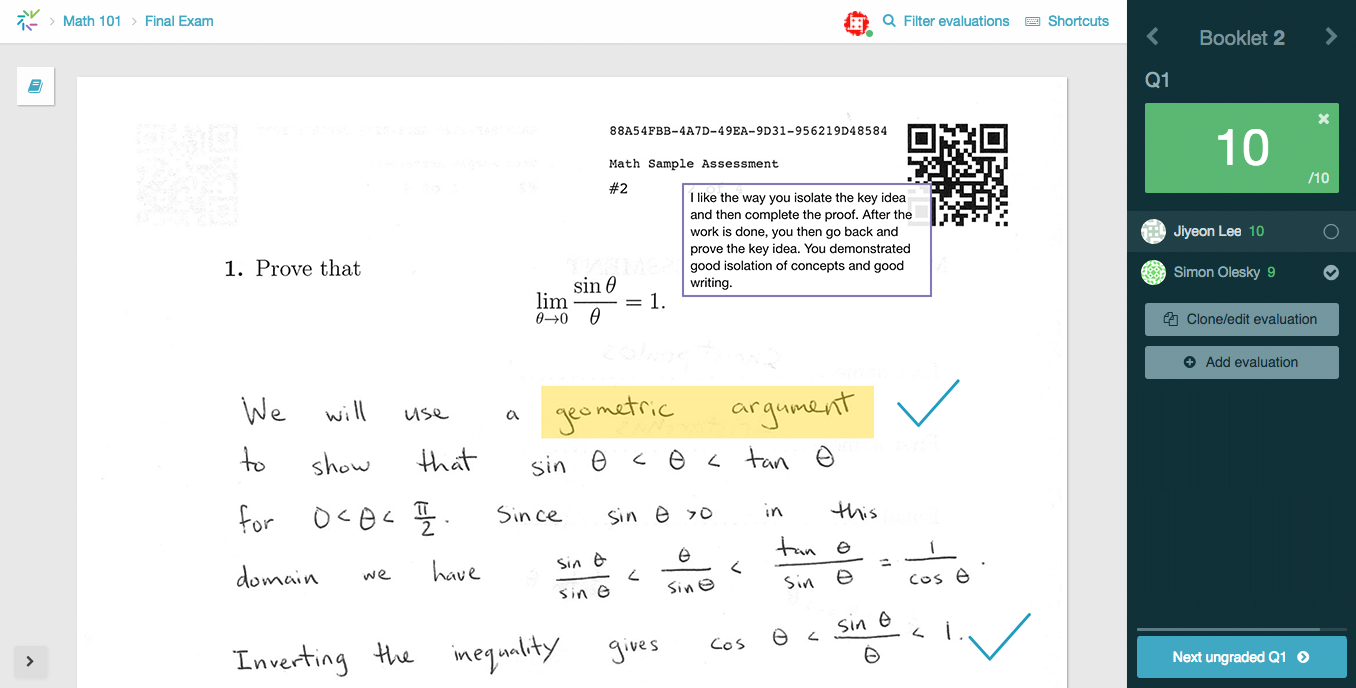 Math 101 > Final Exam
Filter evaluations Shortcuts
Booklet 2
Q1
10
/10
Jiyeon Lee 10
Simon Olesky 9
Clone/edit evaluation
Add evaluation
Next ungraded Q1
88A54FBB-4A7D-49EA-9D31-956219D48584
Math Sample Assessment
#2
I like the way you isolate the key idea
and then complete the proof. After the
work is done, you then go back and
prove the key idea. You demonstrated
good isolation of concepts and good
writing.
1. Prove that
lim θ→0 sin θ / θ = 1.
We will use a geometric argument
to show that sin θ < θ < tan θ
for 0 < θ < π/2. Since sin θ > 0 in this
domain we have sin θ / sin θ < θ / sin θ < tan θ / sin θ = 1 / cos θ.
Inverting the inequality gives cos θ < sin θ / θ < 1.